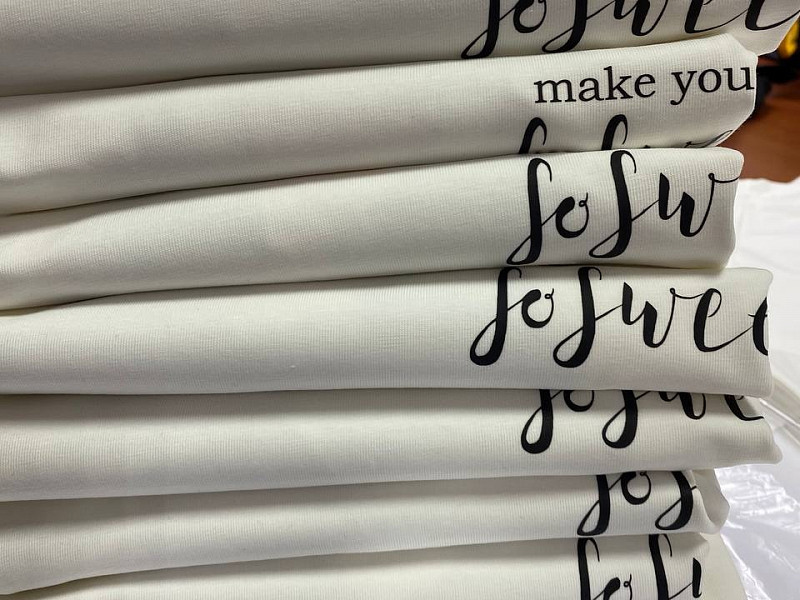 So Swee
make you
So Sw
So Swee
So Swe
So S
So S